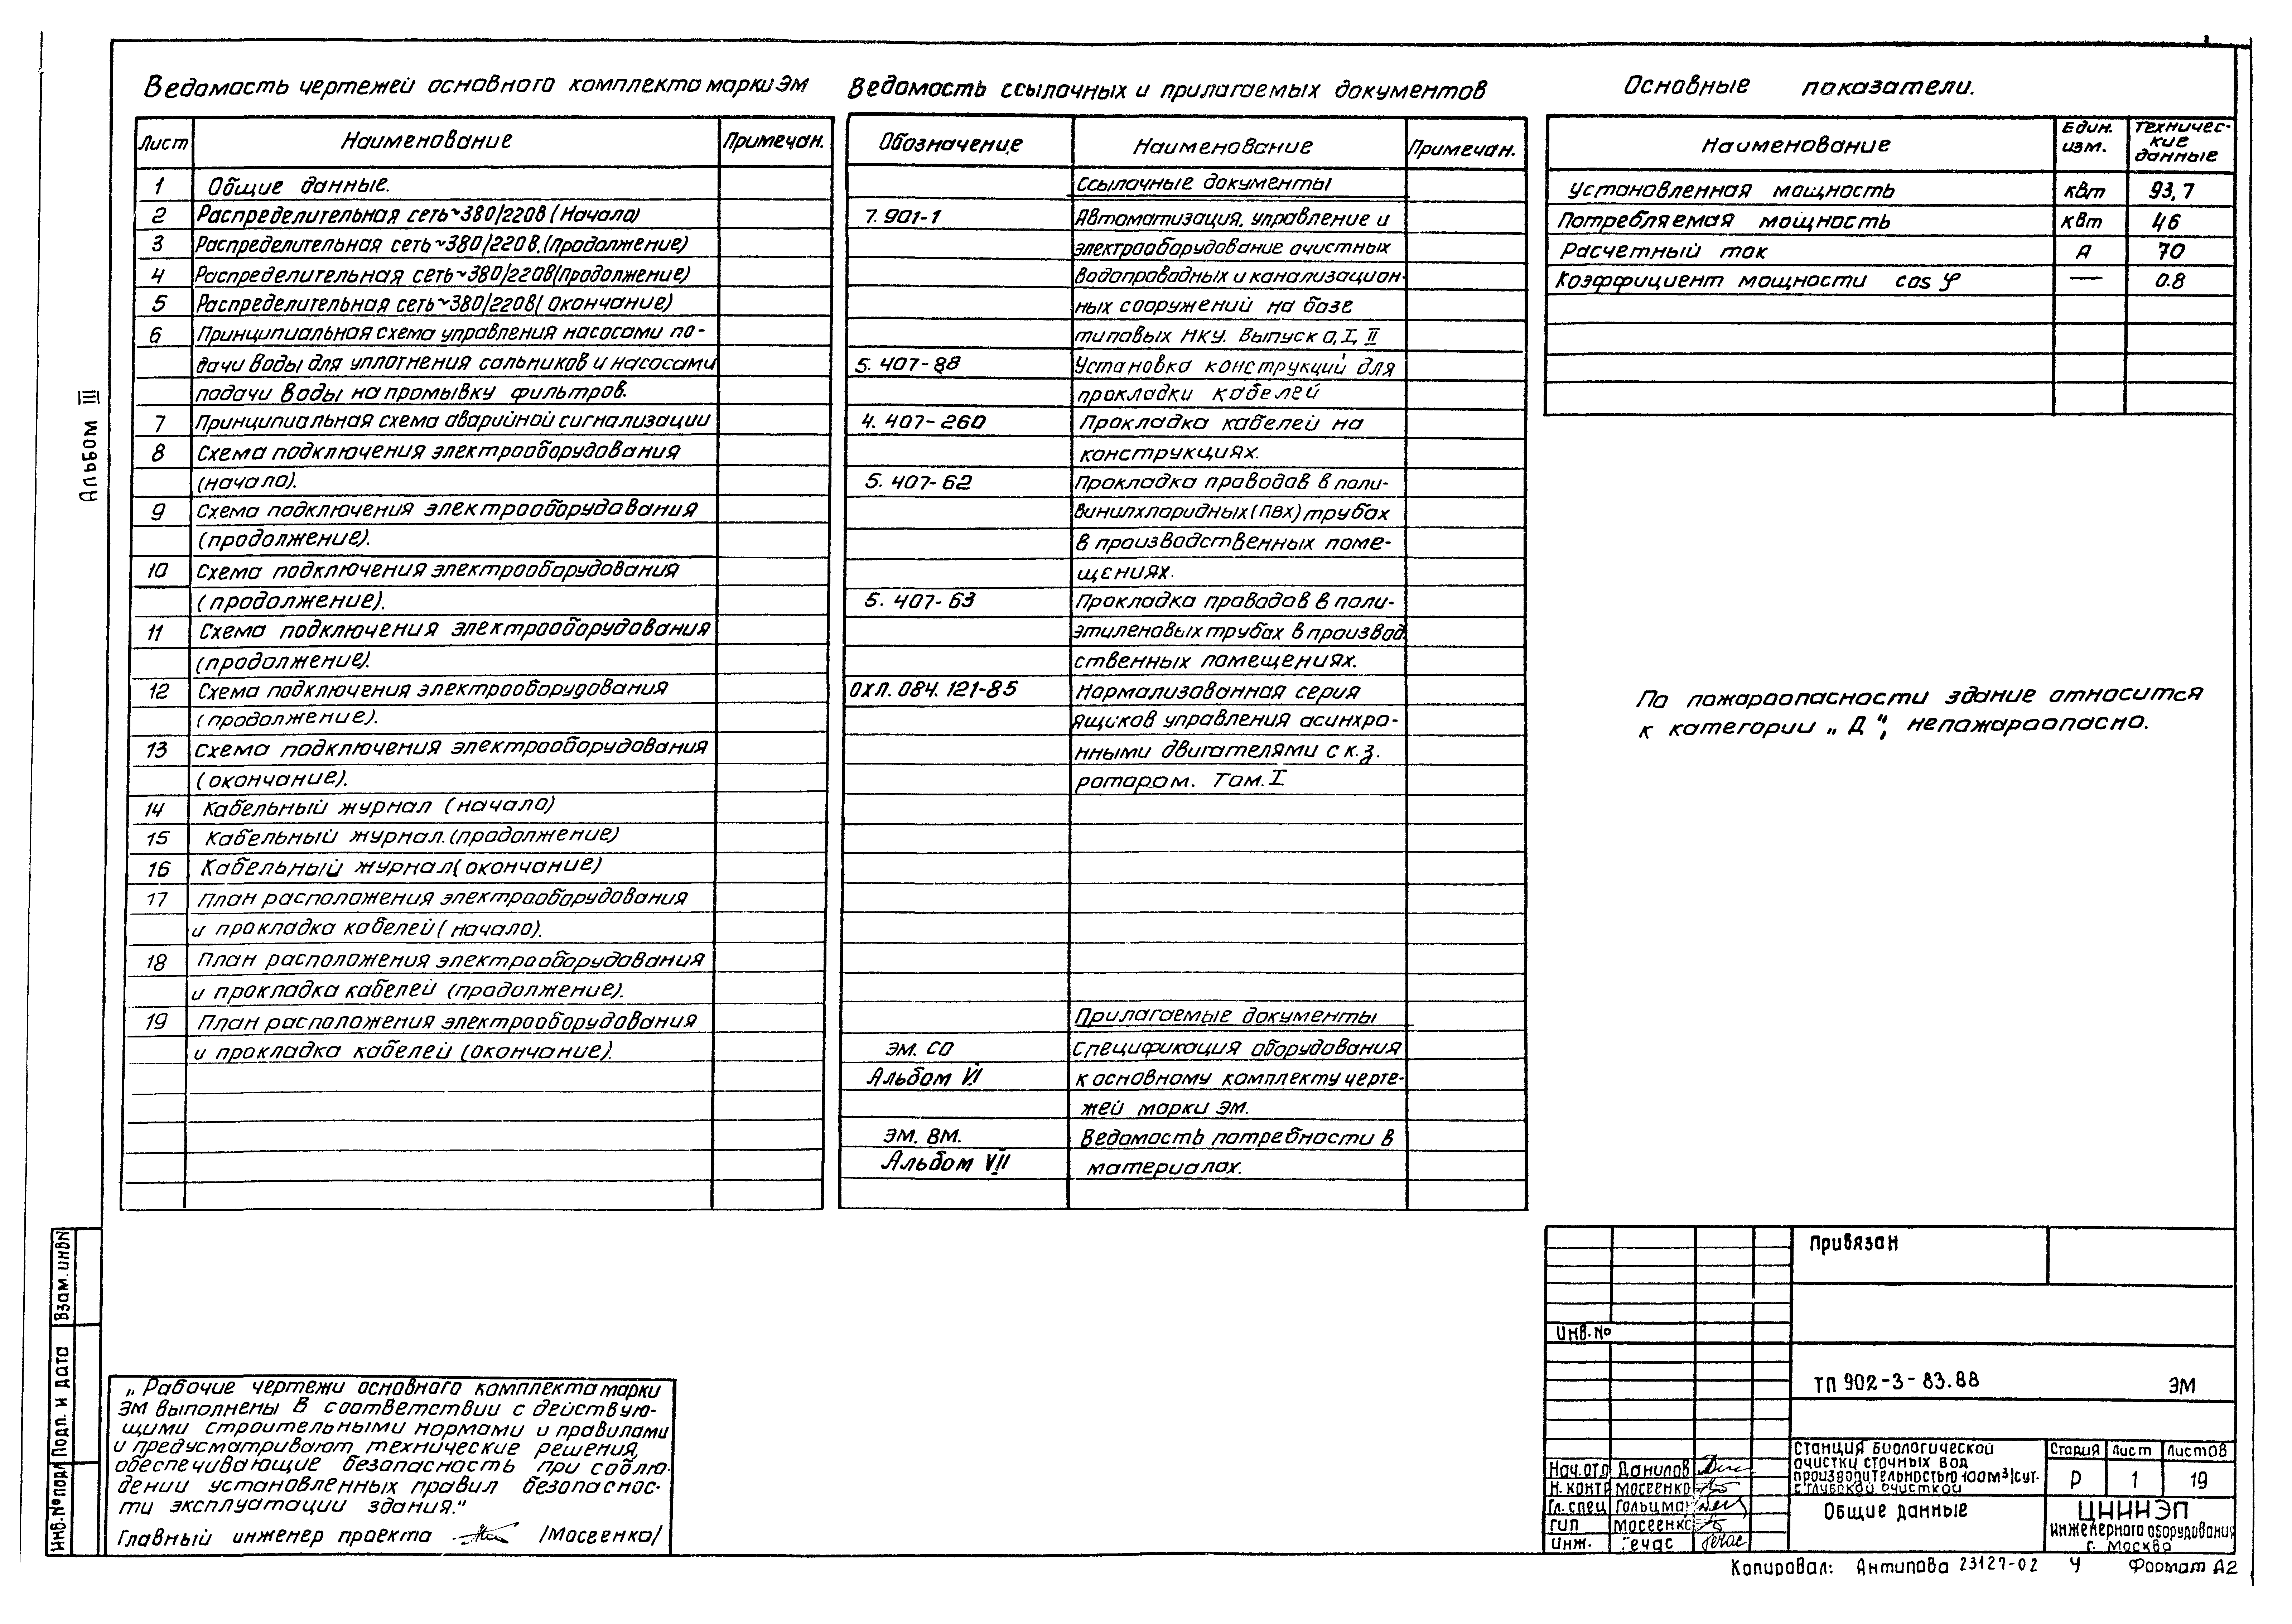 Альбом III
Ведомость чертежей основного комплекта марки ЭМ
Лист Наименование Примечан.
1 Общие данные.
2 Распределительная сеть ~380/220В (Начало)
3 Распределительная сеть ~380/220В. (продолжение)
4 Распределительная сеть ~380/220В (продолжение)
5 Распределительная сеть ~380/220В (окончание)
6 Принципиальная схема управления насосами по-
дачи воды для уплотнения сальников и насосами
подачи воды на промывку фильтров.
7 Принципиальная схема аварийной сигнализации
8 Схема подключения электрооборудования
(начало).
9 Схема подключения электрооборудования
(продолжение).
10 Схема подключения электрооборудования
(продолжение).
11 Схема подключения электрооборудования
(продолжение).
12 Схема подключения электрооборудования
(продолжение).
13 Схема подключения электрооборудования
(окончание).
14 Кабельный журнал (начало)
15 Кабельный журнал. (продолжение)
16 Кабельный журнал (окончание)
17 План расположения электрооборудования
и прокладка кабелей (начало).
18 План расположения электрооборудования
и прокладка кабелей (продолжение).
19 План расположения электрооборудования
и прокладка кабелей (окончание).
Ведомость ссылочных и прилагаемых документов
Обозначение Наименование Примечан.
Ссылочные документы
7.901-1 Автоматизация, управление и
электрооборудование очистных
водопроводных и канализацион-
ных сооружений на базе
типовых НКУ. Выпуск 0, I, II
5.407-88 Установка конструкций для
прокладки кабелей
4.407-260 Прокладка кабелей на
конструкциях.
5.407-62 Прокладка проводов в поли-
винилхлоридных (ПВХ) трубах
в производственных поме-
щениях.
5.407-63 Прокладка проводов в поли-
этиленовых трубах в производ.
ственных помещениях.
ОХЛ.084.121-85 Нормализованная серия
ящиков управления асинхро-
нными двигателями с к.з.
ротором. Том. I
Прилагаемые документы
ЭМ. СО Спецификация оборудования
Альбом VI к основному комплекту черте-
жей марки ЭМ.
ЭМ. ВМ. Ведомость потребности в
Альбом VII материалах.
Основные показатели.
Наименование Един. изм. Техничес-
кие
данные
Установленная мощность кВт 93,7
Потребляемая мощность кВт 46
Расчетный ток А 70
Коэффициент мощности cos φ — 0.8
По пожароопасности здание относится
к категории „Д“, непожароопасно.
„Рабочие чертежи основного комплекта марки
ЭМ выполнены в соответствии с действую-
щими строительными нормами и правилами
и предусматривают технические решения,
обеспечивающие безопасность при соблю-
дении установленных правил безопаснос-
ти эксплуатации здания.“
Главный инженер проекта /Мосеенко/
Взам. инв N
Подп. и дата
Инв. № подл
Привязан
Инв. №
ТП 902-3-83.88 ЭМ
Нач. отд Данилов
Н. контр Мосеенко
Гл. спец Гольцман
ГИП Мосеенко
Инж. Гечас
Станция биологической
очистки сточных вод
производительностью 100м³/сут.
с глубокой очисткой
Стадия Лист Листов
Р 1 19
Общие данные
ЦНИИЭП
инженерного оборудования
г. Москва
Копировал: Антипова 23127-02 4 Формат А2